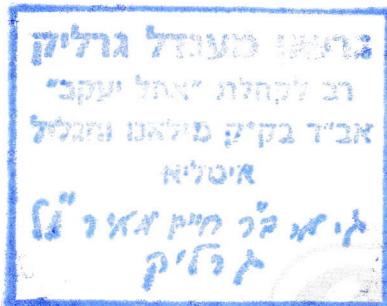 גרשון מענדל גרליק
רב לקהלת "אהל יעקב"
אב"ד בק"ק מילאנו והגליל
איטליא
ג. מ. ב"ר חיים מאיר
גרליק